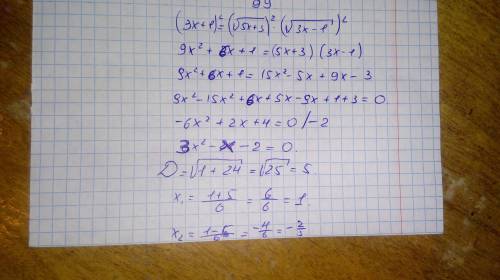 99
(3x+1)² = (√5x+3)² (√3x-1)²
9x² + 6x + 1 = (5x+3) (3x-1)
9x² + 6x + 1 = 15x² - 5x + 9x - 3
9x² - 15x² + 6x + 5x - 9x + 1 + 3 = 0.
-6x² + 2x + 4 = 0 /-2
3x² - x - 2 = 0.
D = √1 + 24 = √25 = 5.
x₁ = (1+5)/6 = 6/6 = 1.
x₂ = (1-5)/6 = -4/6 = -2/3